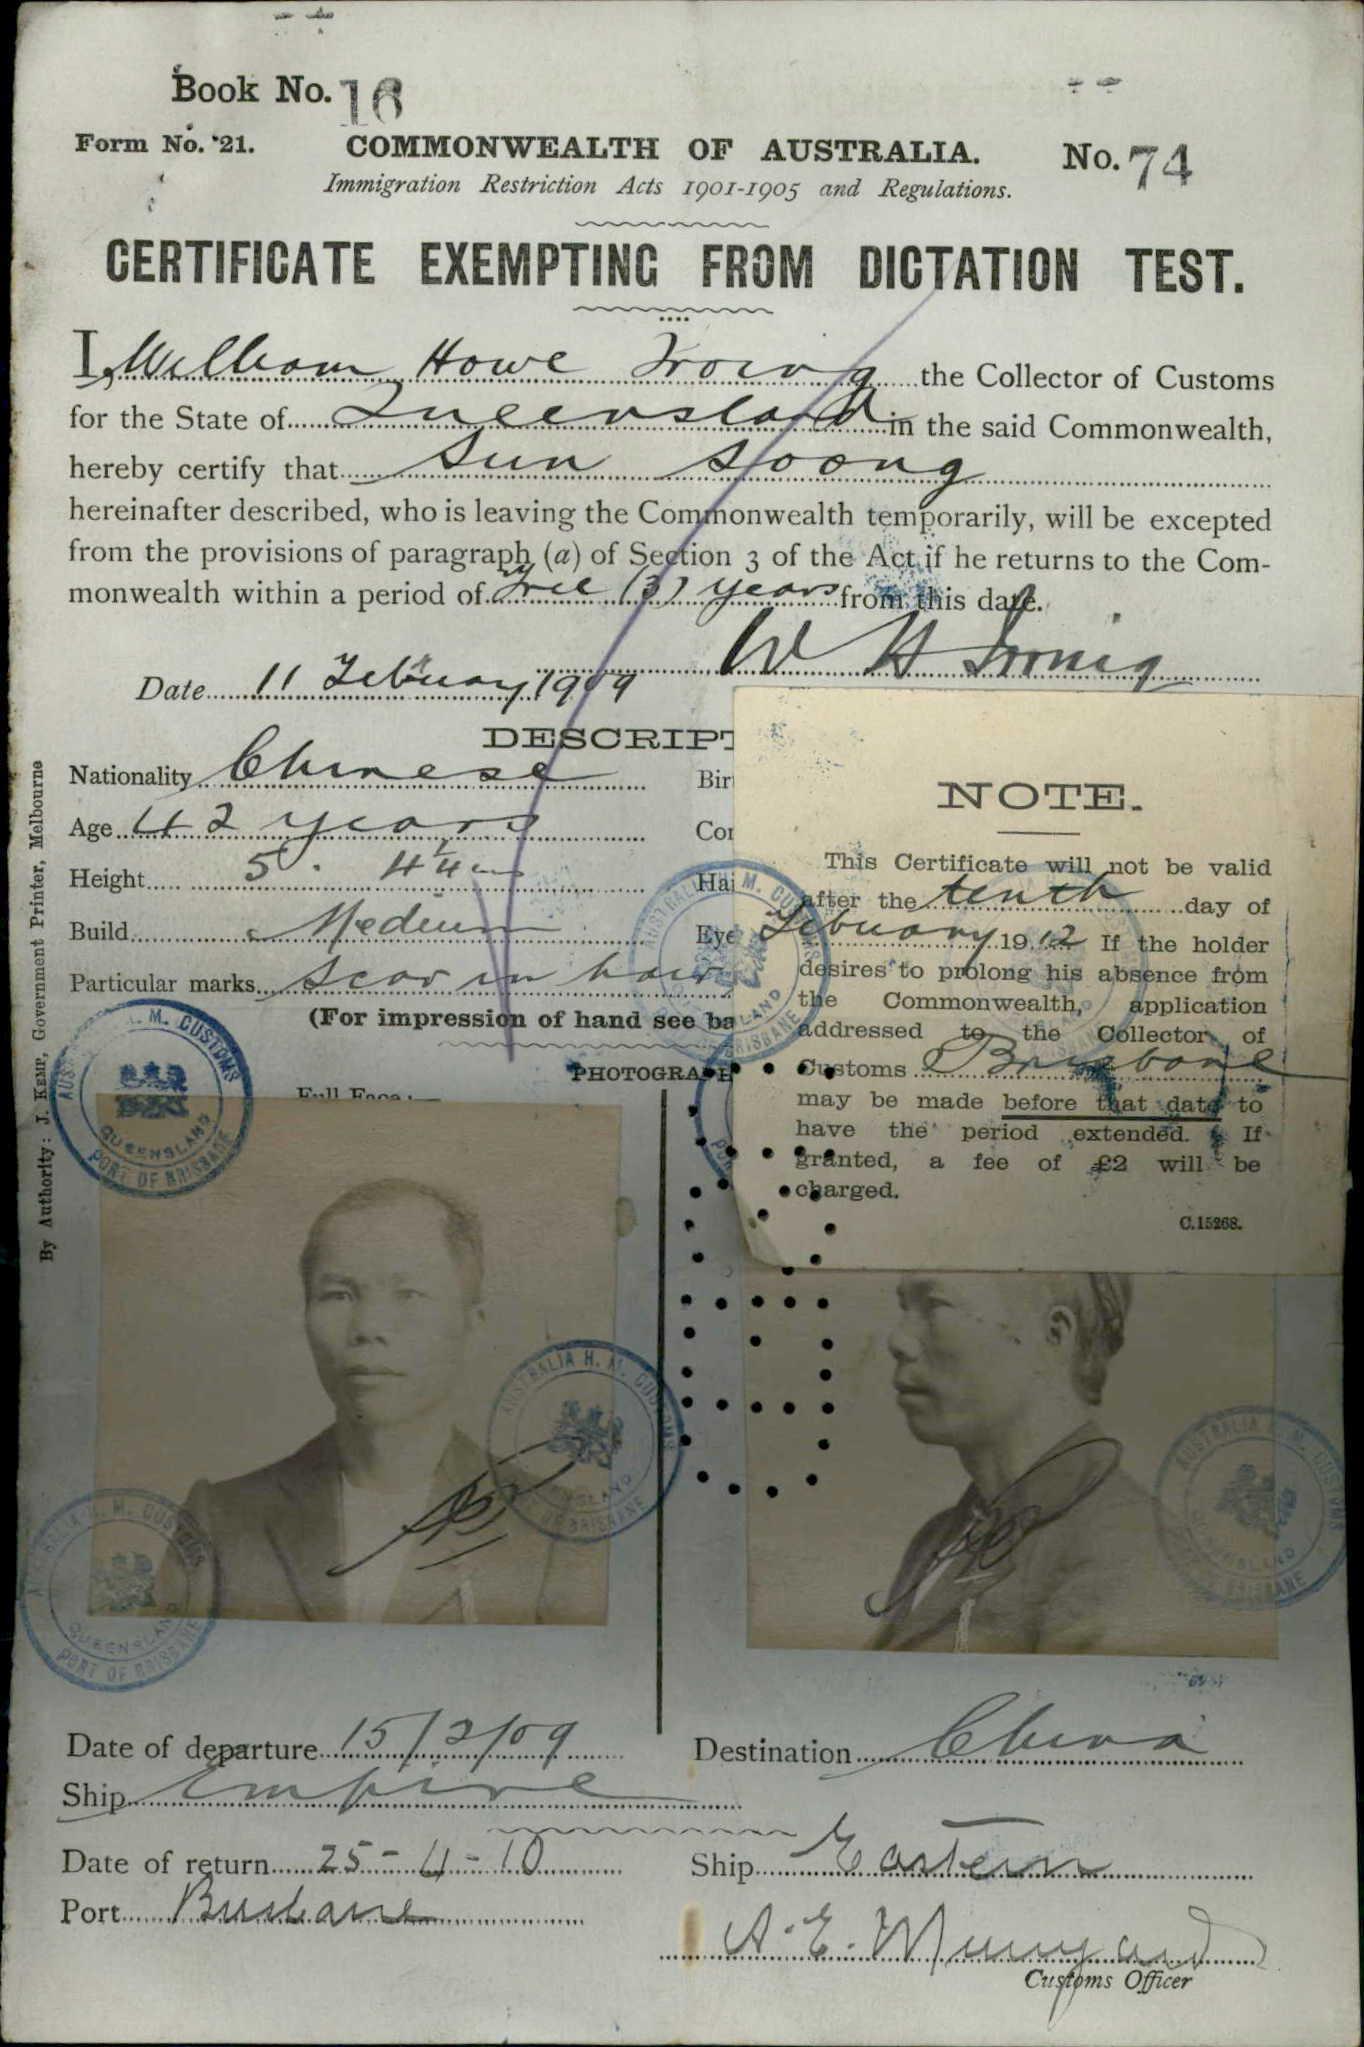 Book No. 16
Form No. 21. COMMONWEALTH OF AUSTRALIA. No. 74
Immigration Restriction Acts 1901-1905 and Regulations.
CERTIFICATE EXEMPTING FROM DICTATION TEST.
I, William Howe Irving the Collector of Customs
for the State of Queensland in the said Commonwealth,
hereby certify that Sun Soong
hereinafter described, who is leaving the Commonwealth temporarily, will be excepted
from the provisions of paragraph (a) of Section 3 of the Act if he returns to the Com-
monwealth within a period of (3) years from this date.
W H Irving
Date 11 February 1909
DESCRIPT
Nationality Chinese Bir
Age 42 years Cor
Height 5. 4 1/4 Hai
Build Medium Eye
Particular marks scar in hair
(For impression of hand see ba
PHOTOGRAPH
Full Face:—
NOTE.
This Certificate will not be valid
after the tenth day of
February 1912 If the holder
desires to prolong his absence from
the Commonwealth, application
addressed to the Collector of
Customs Brisbane
may be made before that date to
have the period extended. If
granted, a fee of £2 will be
charged.
C.15268.
By Authority: J. KEMP, Government Printer, Melbourne
AUSTRALIA H. M. CUSTOMS
QUEENSLAND
PORT OF BRISBANE
AUSTRALIA H. M. CUSTOMS
QUEENSLAND
PORT OF BRISBANE
AUSTRALIA H. M. CUSTOMS
QUEENSLAND
PORT OF BRISBANE
AUSTRALIA H. M. CUSTOMS
QUEENSLAND
PORT OF BRISBANE
AUSTRALIA H. M. CUSTOMS
QUEENSLAND
PORT OF BRISBANE
Date of departure 15/2/09 Destination China
Ship Empire
Date of return 25-4-10 Ship Eastern
Port Brisbane
A. E.
Customs Officer